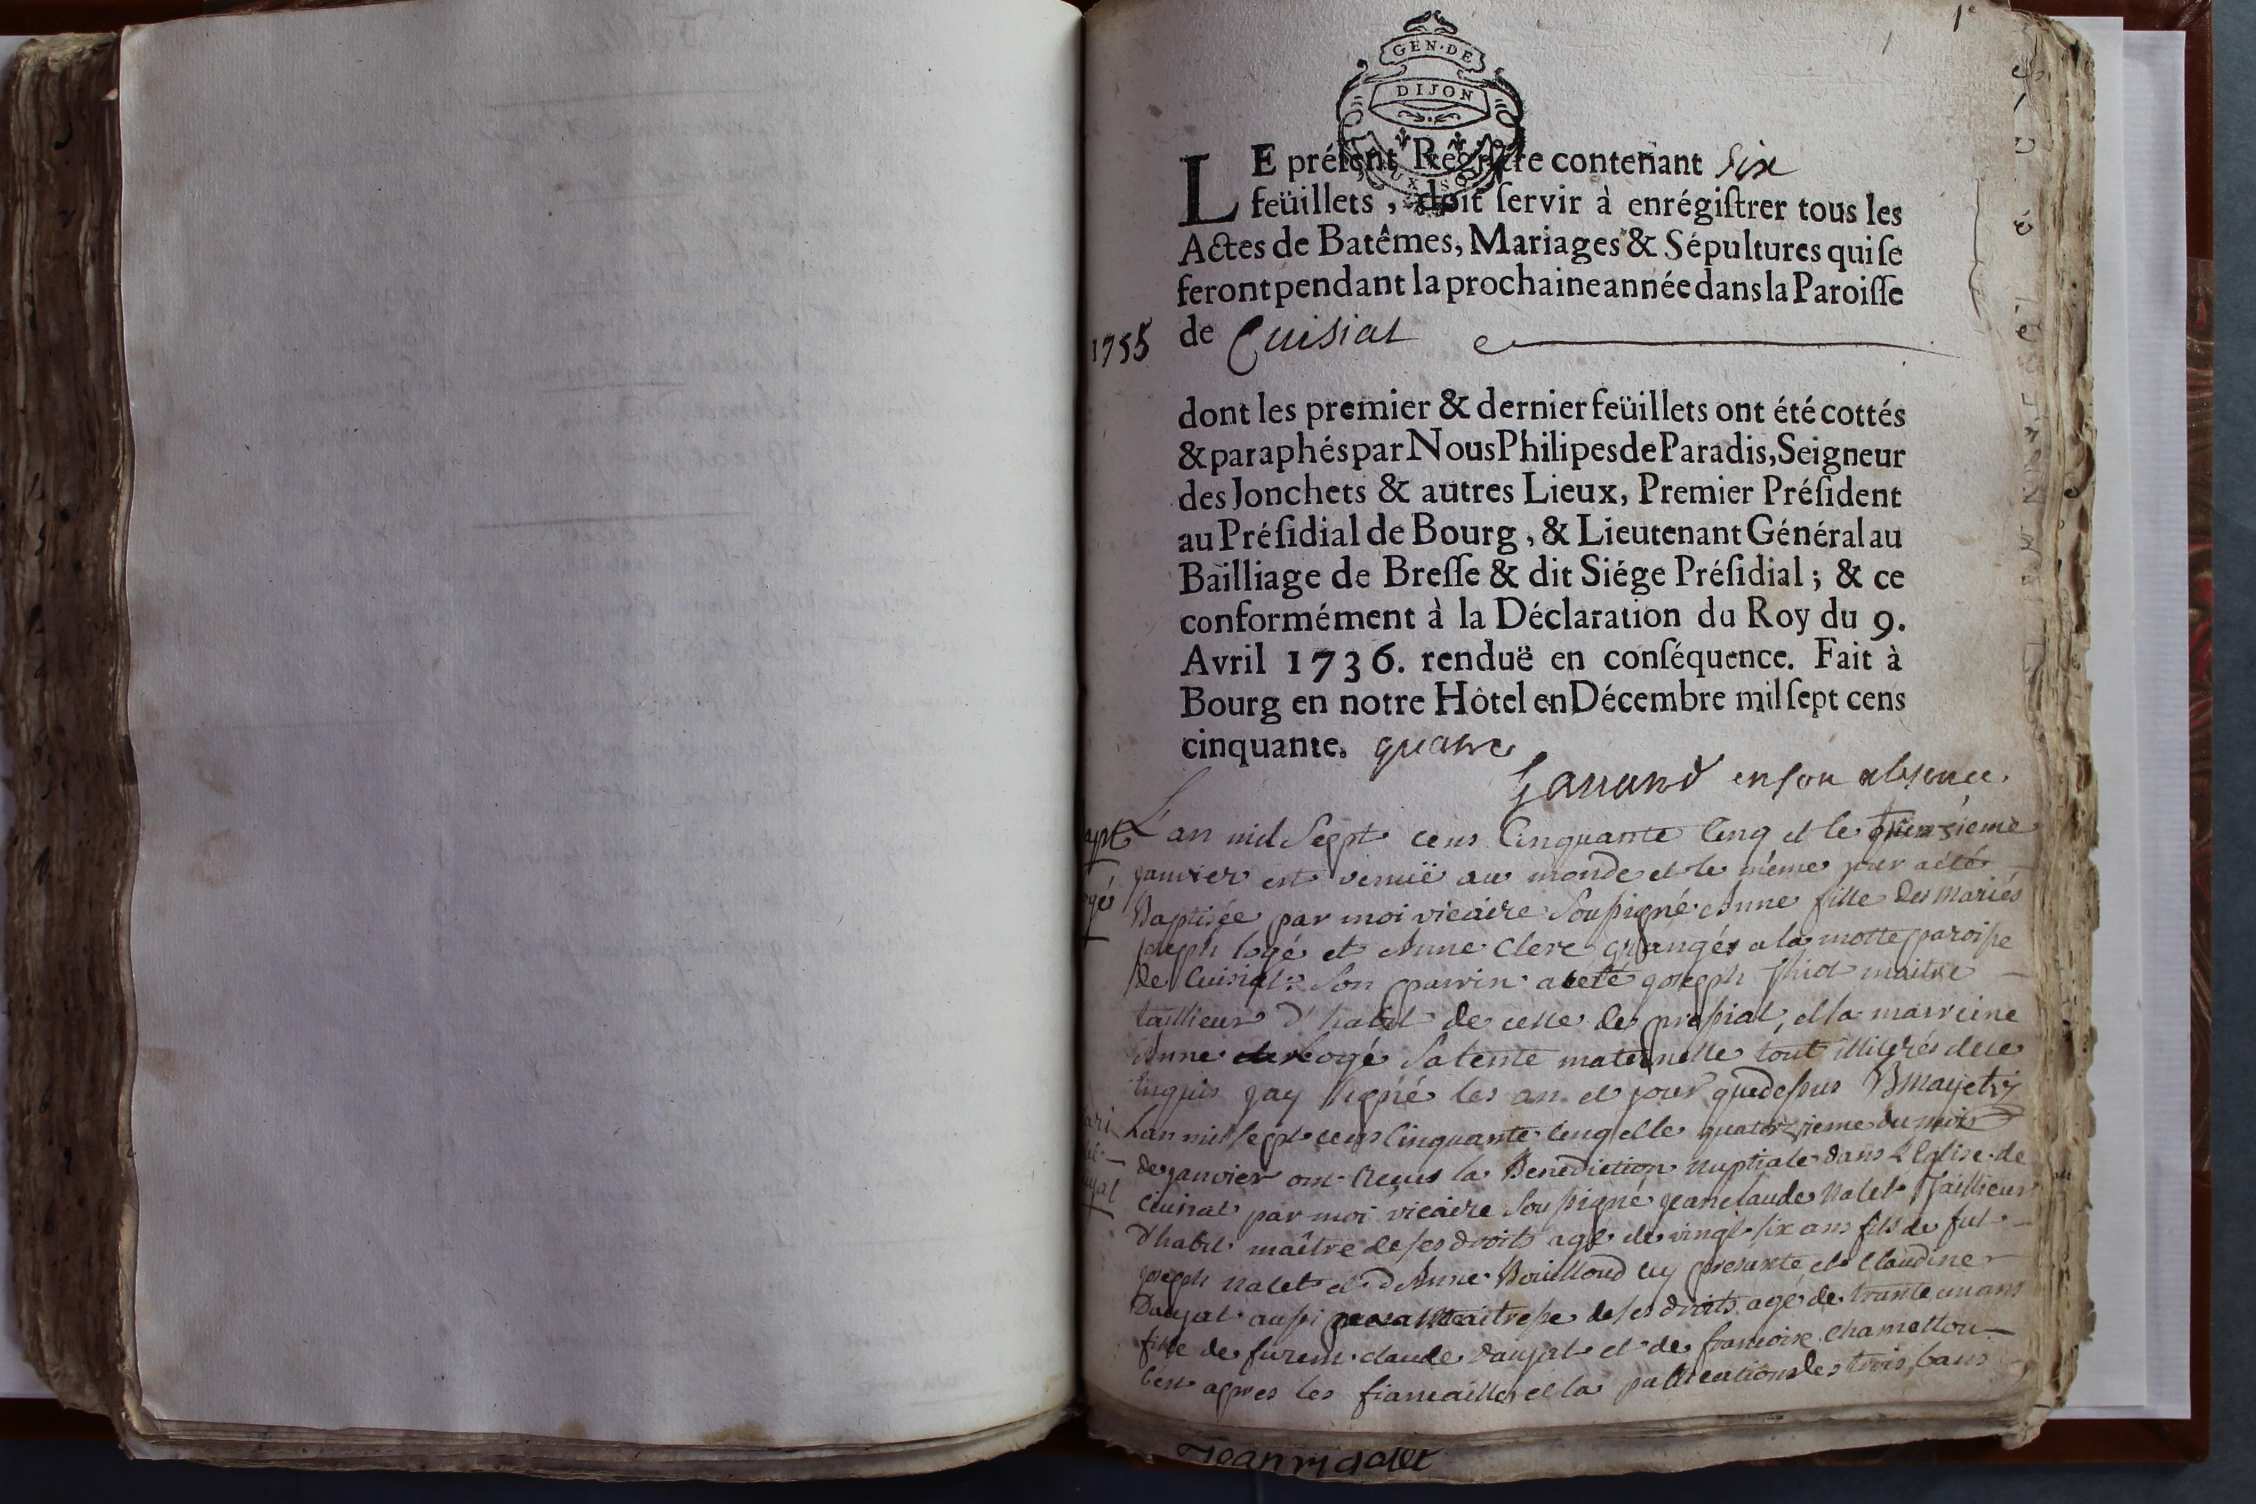 1e
GEN·DE
DIJON
LE préſent Régiſtre contenant six
feüillets, doit ſervir à enrégiſtrer tous les
Actes de Batêmes, Mariages & Sépultures qui ſe
feront pendant la prochaine année dans la Paroiſſe
1755 de Cuisiat
dont les premier & dernier feüillets ont été cottés
& paraphés par Nous Philipes de Paradis, Seigneur
des Jonchets & autres Lieux, Premier Préſident
au Préſidial de Bourg, & Lieutenant Général au
Bailliage de Breſſe & dit Siége Préſidial; & ce
conformément à la Déclaration du Roy du 9.
Avril 1736. renduë en conſéquence. Fait à
Bourg en notre Hôtel en Décembre mil ſept cens
cinquante. quatre
en son absence.
L'an mil Sept cens Cinquante Cinq et le
janvier est venuë au monde et le même jour a été
Baptisée par moi vicaire Soussigné Anne fille des mariés
joseph logé et Anne Clerc grangés a la motte paroisse
de Cuisiat: Son parrin a eté joseph maitre
taillieur d'habit de celle de pressiat, et la marreine
Anne logé Sa tente maternelle tout illitérés dece
enquis jay signé les an et jour quedessus
Lan mil Sept cens Cinquante Cinq et le quatorzieme du mois
de janvier ont Reçus la Benediction Nuptiale dans l'Eglise de
Cuisiat par moi vicaire Soussigné jean claude Nalet Taillieur
D'habit maître de ses droits agé de vingt six ans fils de fut
joseph Nalet et d'Anne Bouilloud icy presante et Claudine
Daujat aussi Maitresse de ses droits agé de trante un ans
fille de furent claude daujat et de francoise chamellou
C'est apres les fiancailles et la publications des trois bans